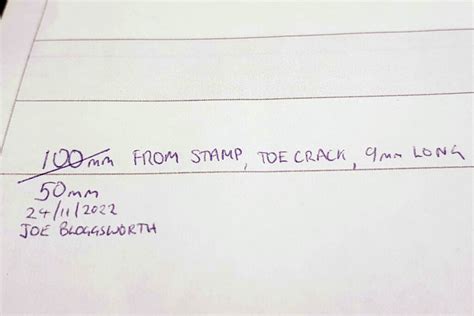 100mm FROM STAMP, TOE CRACK, 9mm LONG
50mm
24/11/2022
JOE BLOGGSWORTH